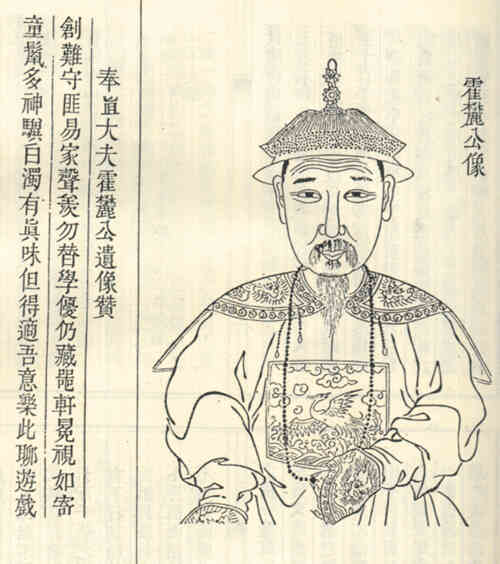 霍麓公像
奉直大夫霍麓公遺像贊
創難守匪易家聲羨勿替學優仍藏噐軒冕視如寄
童鬣多神驥白濁有眞味但得適吾意樂此聊遊戲